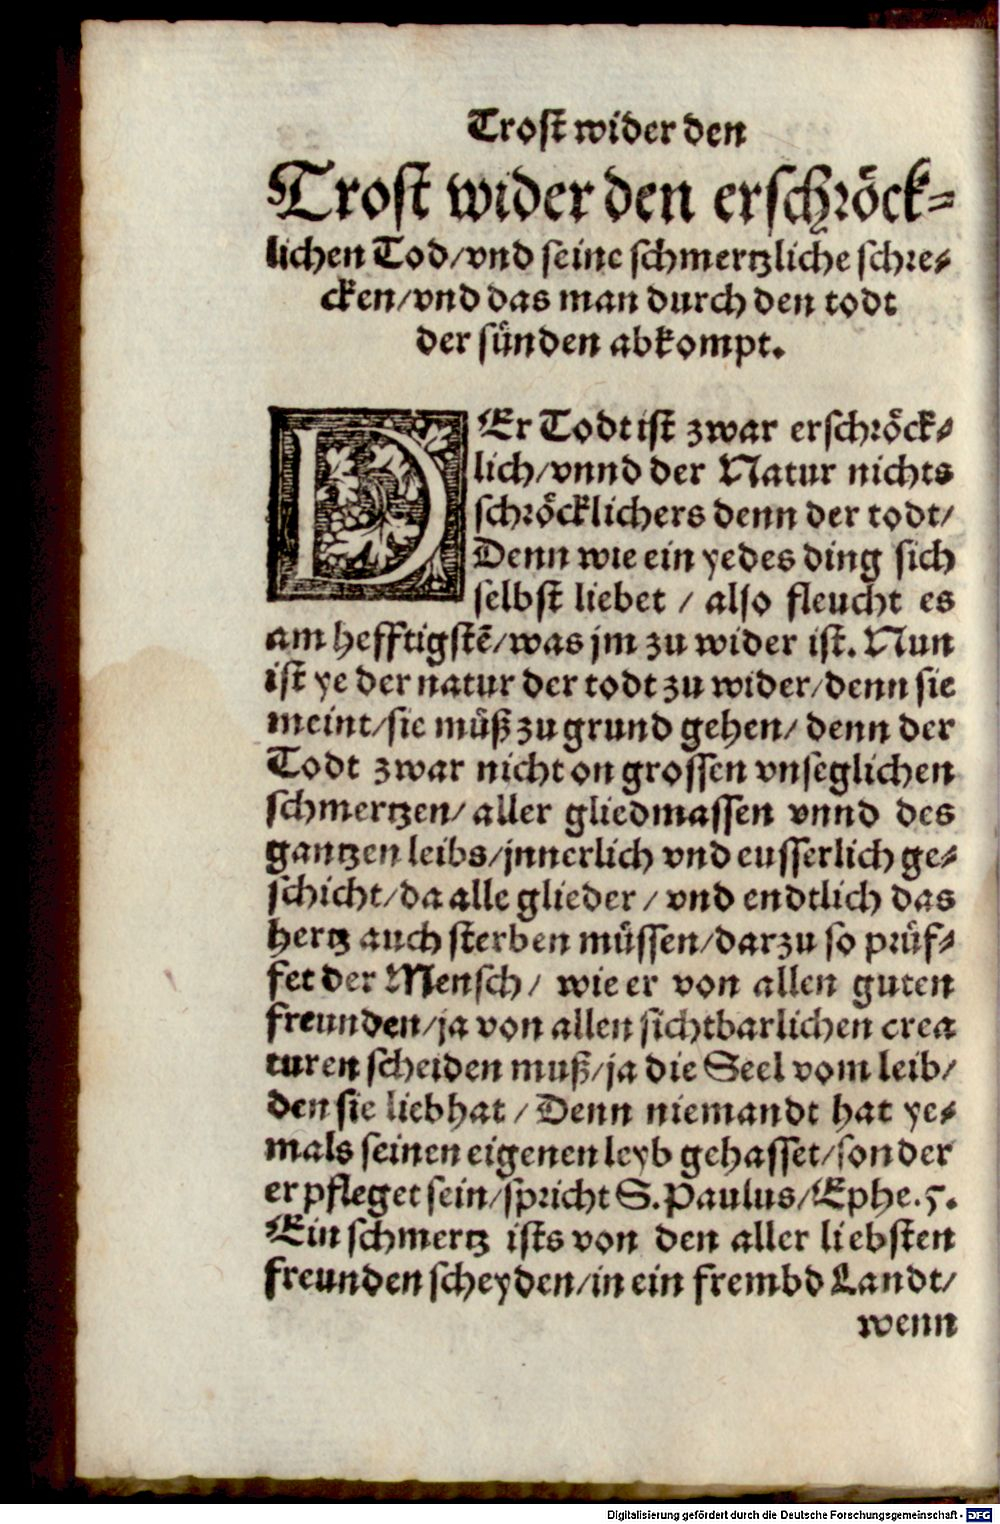 Trost wider den
Trost wider den erschröck-
lichen Tod/vnd seine schmertzliche schre-
cken/vnd das man durch den todt
der sünden abkompt.
DEr Todt ist zwar erschröck-
lich/vnnd der Natur nichts
schröcklichers denn der todt/
Denn wie ein yedes ding sich
selbst liebet / also fleucht es
am hefftigstē/was jm zu wider ist. Nun
ist ye der natur der todt zu wider/denn sie
meint/sie müß zu grund gehen/ denn der
Todt zwar nicht on grossen vnseglichen
schmertzen/ aller gliedmassen vnnd des
gantzen leibs/jnnerlich vnd eusserlich ge-
schicht/da alle glieder / vnd endtlich das
hertz auch sterben müssen/darzu so prüf-
fet der Mensch/ wie er von allen guten
freunden/ja von allen sichtbarlichen crea
turen scheiden muß/ja die Seel vom leib/
den sie lieb hat / Denn niemandt hat ye-
mals seinen eigenen leyb gehasset/sonder
er pfleget sein/spricht S. Paulus/Ephe. 5.
Ein schmertz ists von den aller liebsten
freunden scheyden/in ein frembd Landt/
wenn
Digitalisierung gefördert durch die Deutsche Forschungsgemeinschaft - DFG